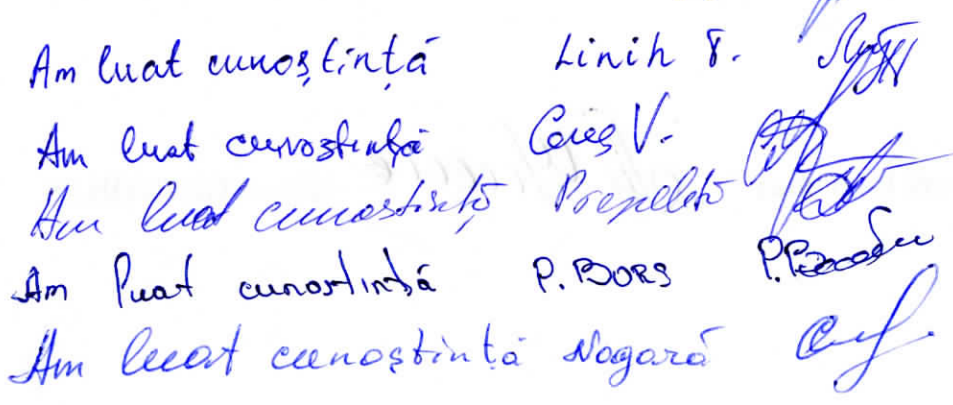 Am luat cunoștință Linih T.
Am luat cunoștința Caus V.
Am luat cunostință Prepeliță
Am luat cunostință P. BORȘ
Am luat cunoștință Nogară